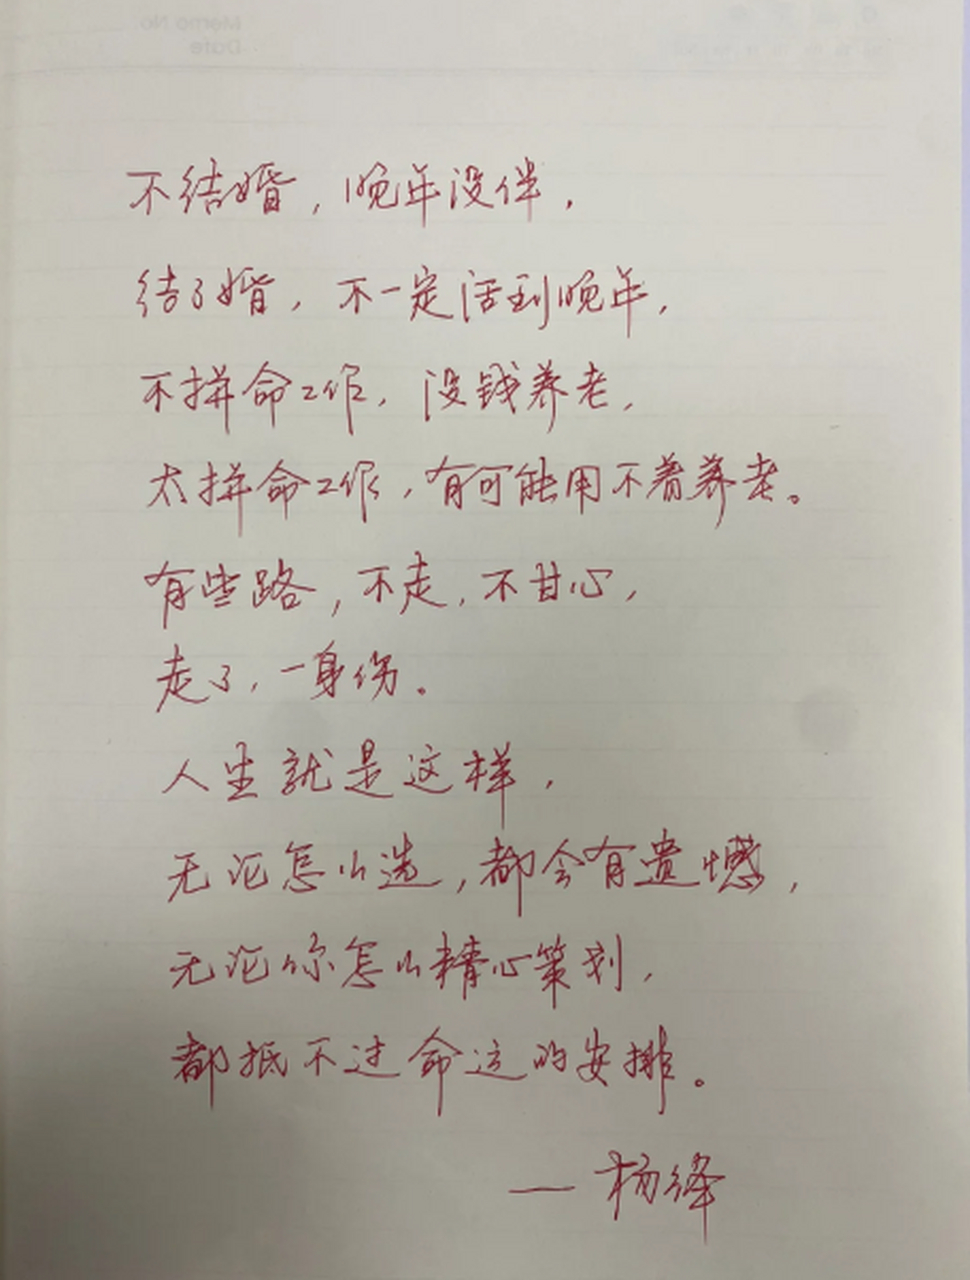 Memo No.
Date
不结婚，晚年没伴，
结了婚，不一定活到晚年，
不拼命工作，没钱养老，
太拼命工作，有可能用不着养老。
有些路，不走，不甘心，
走了，一身伤。
人生就是这样，
无论怎么选，都会有遗憾，
无论你怎么精心策划，
都抵不过命运的安排。
— 杨绛